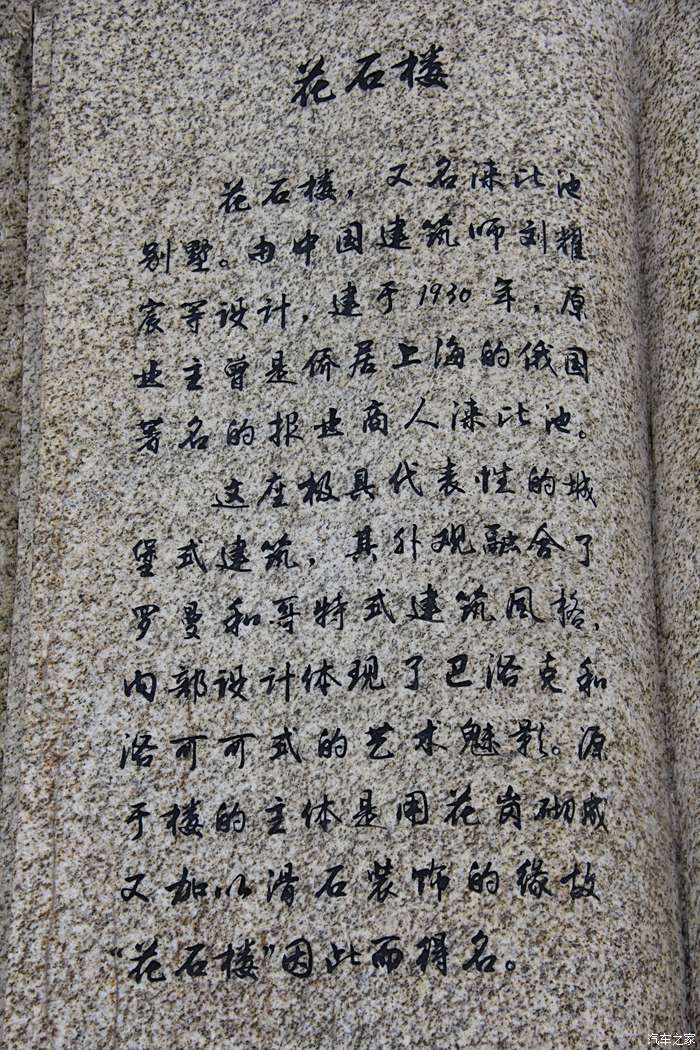 花石楼
花石楼，又名涞比池
别墅。由中国建筑师刘耀
宸等设计，建于1930年，原
业主曾是侨居上海的俄国
著名的报业商人涞比池。
这座极具代表性的城
堡式建筑，其外观融合了
罗曼和哥特式建筑风格，
内部设计体现了巴洛克和
洛可可式的艺术魅影。源
于楼的主体是用花岗砌成
又加以滑石装饰的缘故
“花石楼”因此而得名。
汽车之家